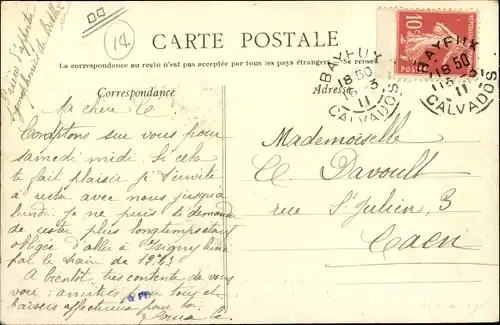 14
CARTE POSTALE
La correspondance au recto n'est pas acceptée par tous les pays étrangers. Se rensei
Correspondance
Adresse
10c
POSTES
BAYEUX
18 50
3
11
CALVADOS
BAYEUX
18 50
3
11
CALVADOS
Prière d'apporter
Ma chère C.
Comptons sur vous pour
samedi midi. Si cela
te fait plaisir je t'invite
à rester avec nous jusqu'à
lundi. Je ne puis te demander
de rester plus longtemps étant
obligée d'aller à Isigny
par le train de
A bientôt, très contente de vous
voir; amitiés pour tous et
baisers affectueux pour toi.
Mademoiselle
C. Davoult
rue St Julien, 3
Caen